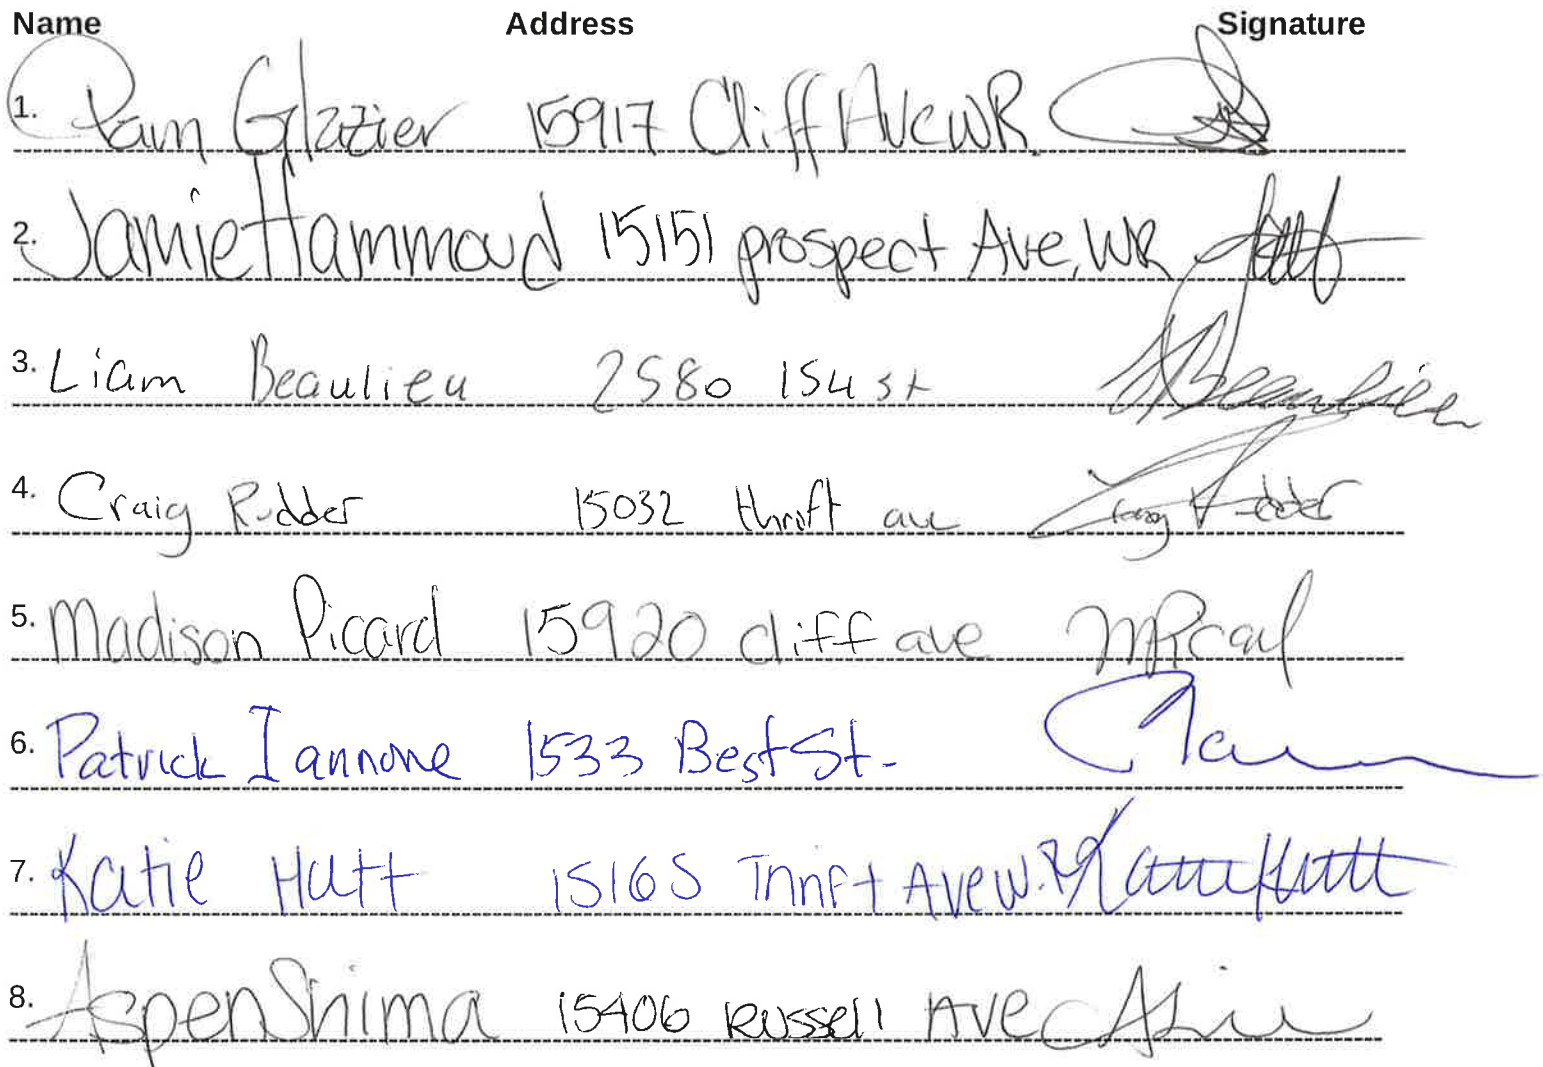 Name Address Signature
1. Pam Glazier 15917 Cliff Ave WR.
2. Jamie Hammond 15151 prospect Ave, WR
3. Liam Beaulieu 2580 154 st L Beaulieu
4. Craig Rudder 15032 thrift ave Craig Rudder
5. Madison Picard 15920 cliff ave MPicard
6. Patrick Iannone 1533 Best St.
7. Katie Hutt 15165 Thrift Ave W.R Katie Hutt
8. Aspen Shima 15406 Russell Ave